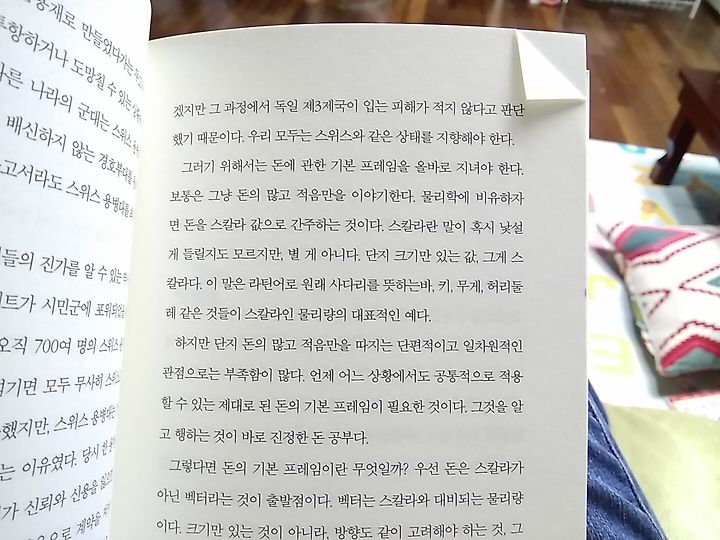 공재로 만들었다가는
투항하거나 도망칠 수 있는
다른 나라의 군대는 스위스
배신하지 않는 경호부대를
고서라도 스위스 용병대를
들의 진가를 알 수 있는
트가 시민군에 포위되었을
오직 700여 명의 스위스
넘기면 모두 무사히 스위스
했지만, 스위스 용병대는
는 이유였다. 당시 한
가 신뢰와 신용을 잃으면
으로 계약을
겠지만 그 과정에서 독일 제3제국이 입는 피해가 적지 않다고 판단
했기 때문이다. 우리 모두는 스위스와 같은 상태를 지향해야 한다.
그러기 위해서는 돈에 관한 기본 프레임을 올바로 지녀야 한다.
보통은 그냥 돈의 많고 적음만을 이야기한다. 물리학에 비유하자
면 돈을 스칼라 값으로 간주하는 것이다. 스칼라란 말이 혹시 낯설
게 들릴지도 모르지만, 별 게 아니다. 단지 크기만 있는 값, 그게 스
칼라다. 이 말은 라틴어로 원래 사다리를 뜻하는바, 키, 무게, 허리둘
레 같은 것들이 스칼라인 물리량의 대표적인 예다.
하지만 단지 돈의 많고 적음만을 따지는 단편적이고 일차원적인
관점으로는 부족함이 많다. 언제 어느 상황에서도 공통적으로 적용
할 수 있는 제대로 된 돈의 기본 프레임이 필요한 것이다. 그것을 알
고 행하는 것이 바로 진정한 돈 공부다.
그렇다면 돈의 기본 프레임이란 무엇일까? 우선 돈은 스칼라가
아닌 벡터라는 것이 출발점이다. 벡터는 스칼라와 대비되는 물리량
이다. 크기만 있는 것이 아니라, 방향도 같이 고려해야 하는 것, 그